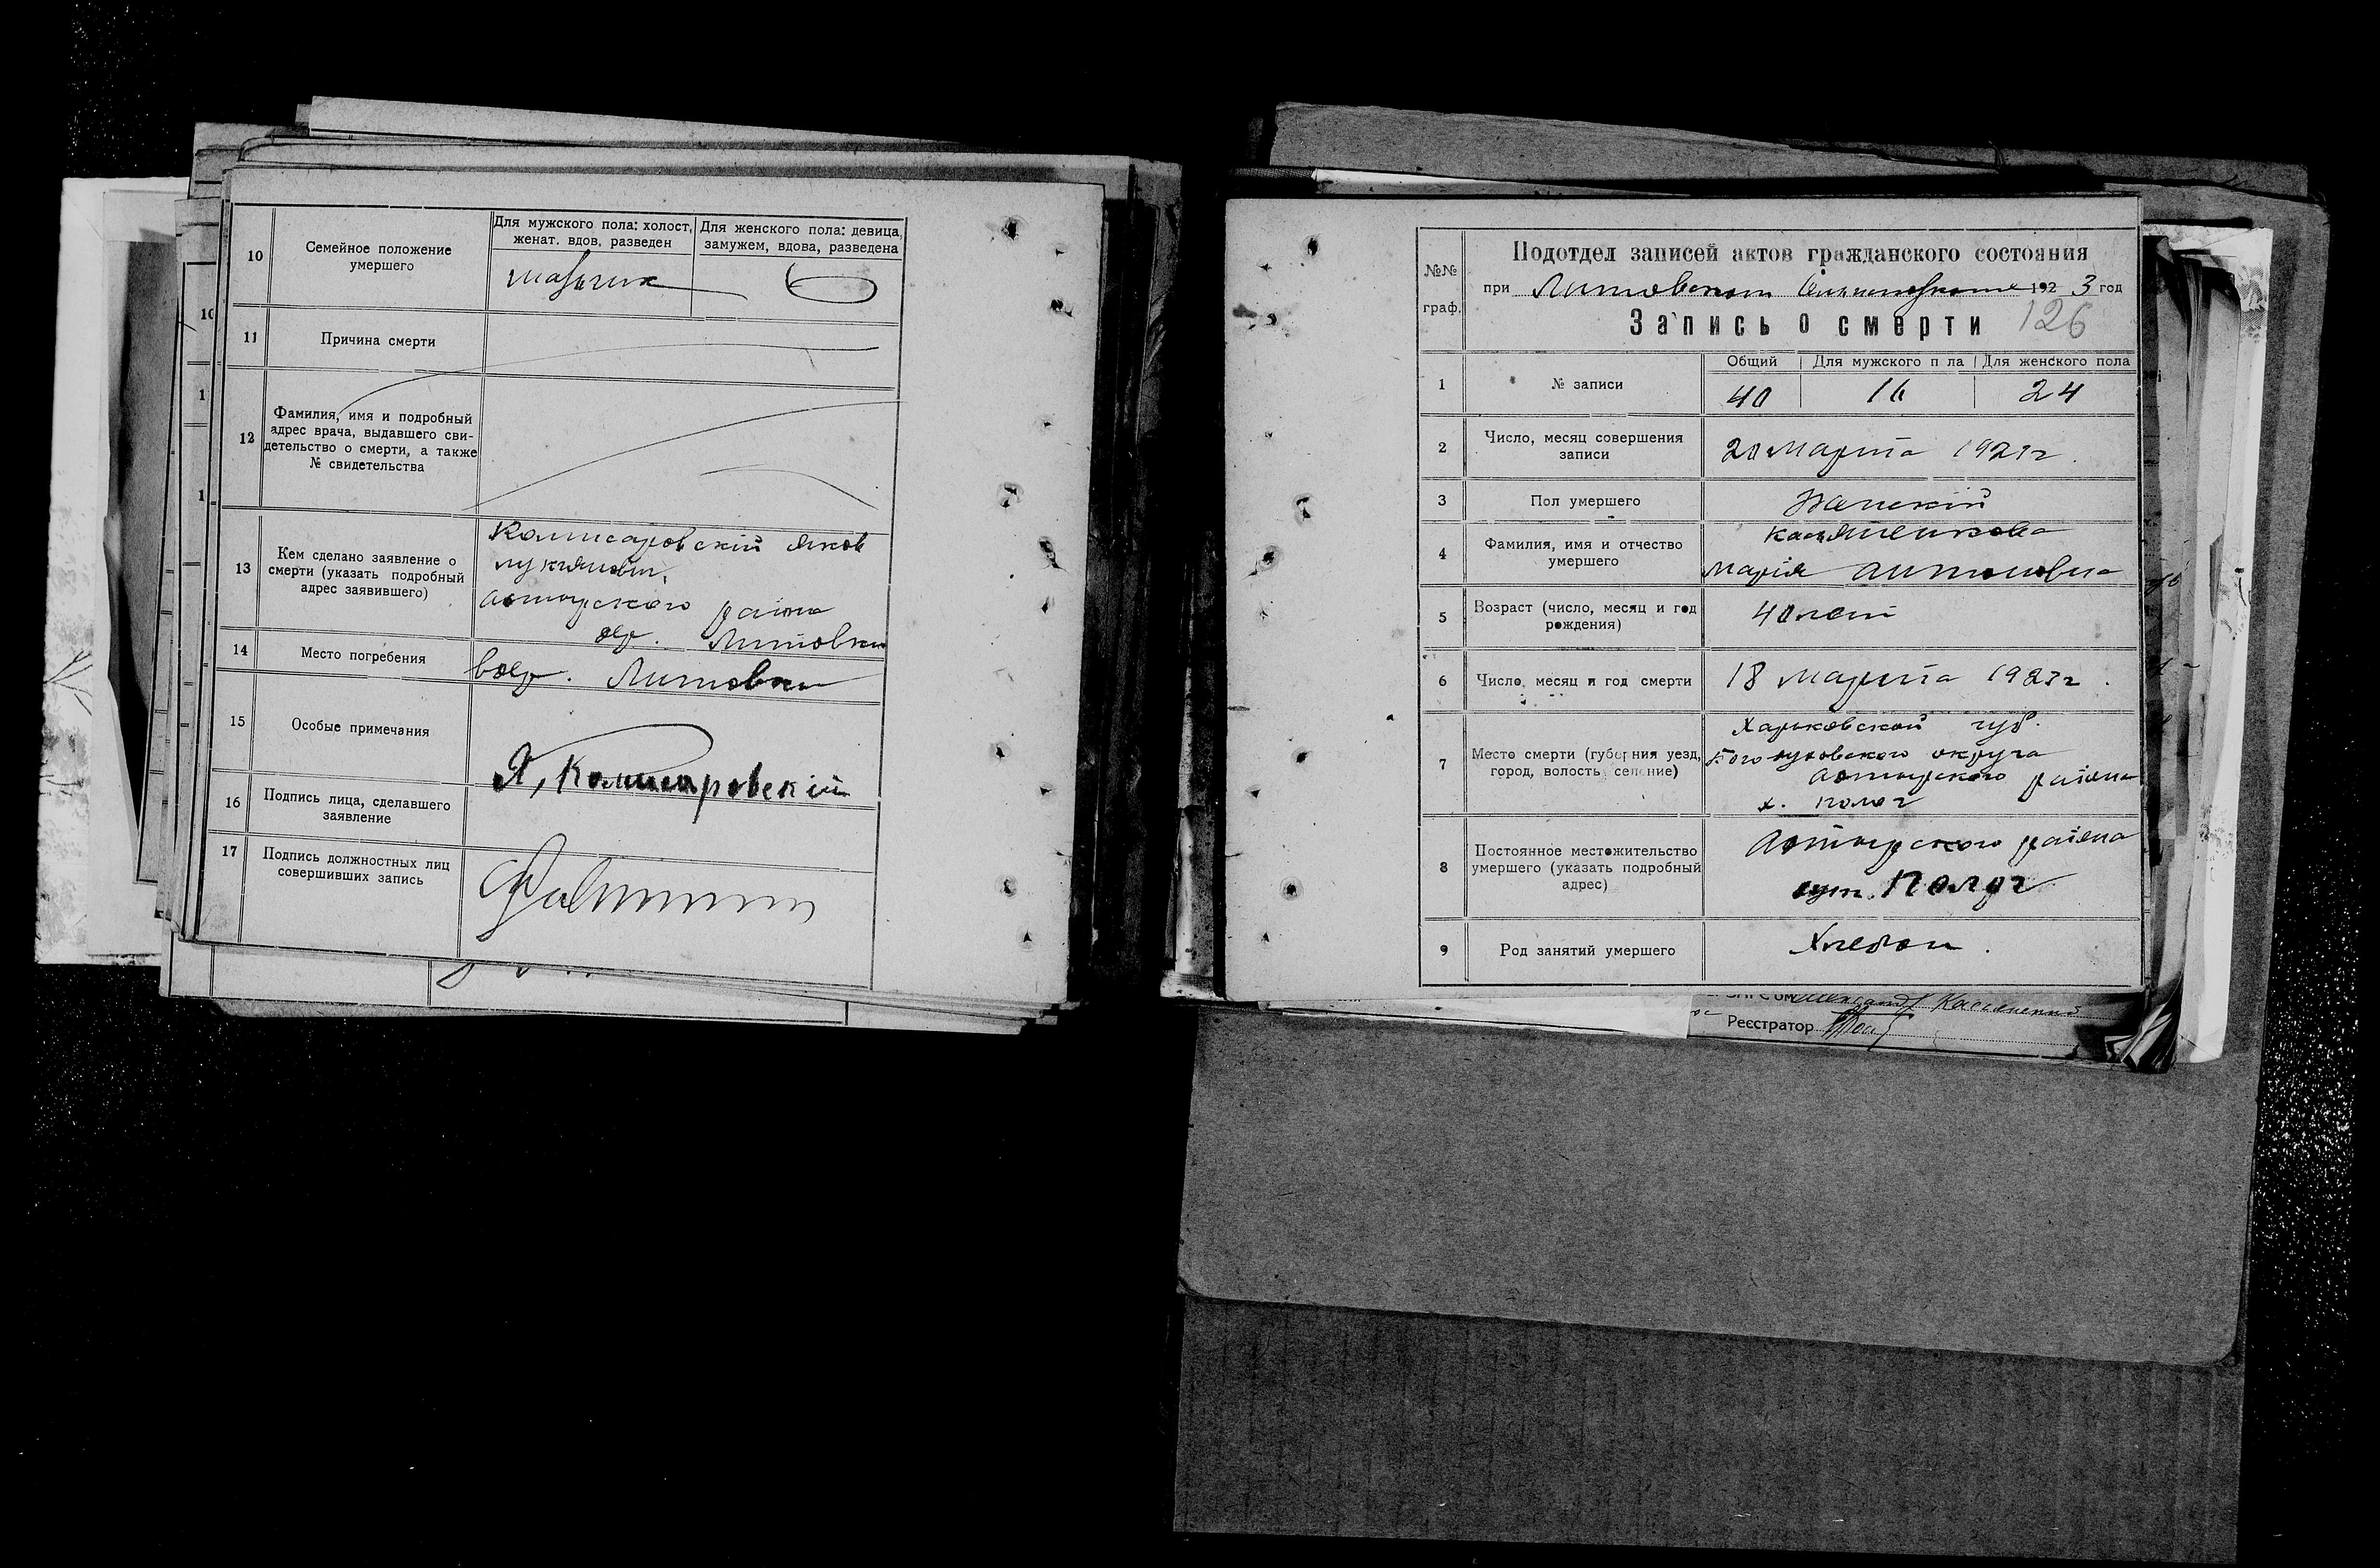 10
Семейное положение
умершего
Для мужского пола: холост,
женат. вдов, разведен
Для женского пола: девица,
замужем, вдова, разведена
мальчик
11
Причина смерти
12
Фамилия, имя и подробный
адрес врача, выдавшего сви-
детельство о смерти, а также
№ свидетельства
13
Кем сделано заявление о
смерти (указать подробный
адрес заявившего)
Комисаровскій Яков
лукянови
Ахтырского раіона
дер. Литовки
14
Место погребения
вдер. Литовки
15
Особые примечания
16
Подпись лица, сделавшего
заявление
Я, Комисаровскій
17
Подпись должностных лиц
совершивших запись
№№
граф.
Подотдел записей актов гражданского состояния
при Литовском 1923 год
Запись о смерти 126
1
№ записи
Общий
Для мужского п ла
Для женского пола
40
16
24
2
Число, месяц совершения
записи
20 Марта 1923г.
3
Пол умершего
Женскій
4
Фамилия, имя и отчество
умершего
Касяненкова
Марія Антоновна
5
Возраст (число, месяц и год
рождения)
40 лет
6
Число, месяц и год смерти
18 Марта 1923г.
7
Место смерти (губерния уезд,
город, волость, селение)
Харьковской губ.
Богодуховского округа
Ахтырского раіона
х. Полог
8
Постоянное местожительство
умершего (указать подробный
адрес)
Ахтырского раіона
хут. Полог
9
Род занятий умершего
Хлебоп.
Касяненко
Реєстратор